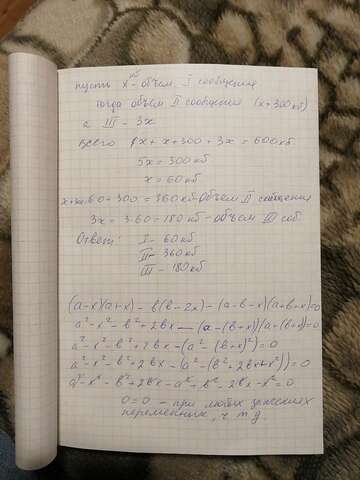 пусть x кб - объем I сообщения
тогда объем II сообщения (x+300кб)
а III - 3x
всего x + x + 300 + 3x = 600кб
5x = 300кб
x = 60кб
60 + 300 = 360кб - объем II сообщения
3x = 3·60 = 180кб - объем III соб
Ответ: I - 60кб
II - 360кб
III - 180кб
(a-x)(a+x) - b(b-2x) - (a-b-x)(a+b-x)=0
a²-x²-b²+2bx - (a-(b+x))(a+(b+x))=0
a²-x²-b²+2bx - (a²-(b+x)²)=0
a²-x²-b²+2bx - (a²-(b²+2bx+x²))=0
a²-x²-b²+2bx-a²-b²-2bx-x²=0
0=0 - при любых значениях
переменных, ч т д